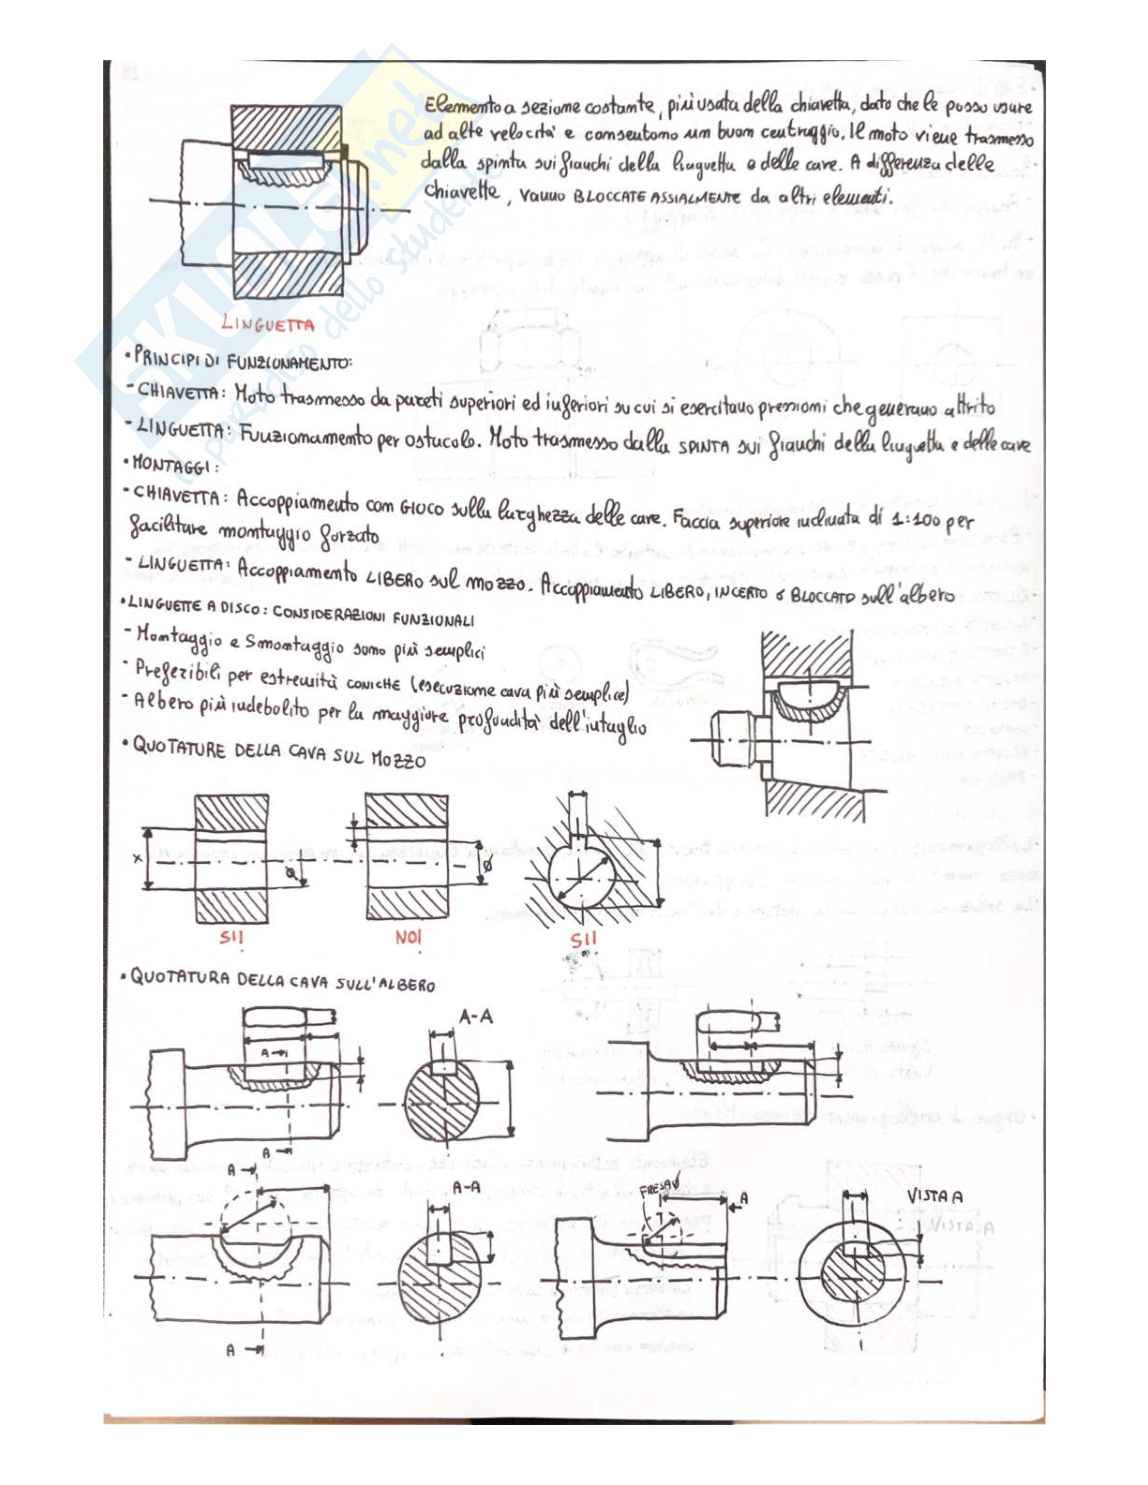 Elemento a sezione costante, più usata della chiavetta, dato che le posso usare
ad alte velocità e consentono un buon centraggio. Il moto viene trasmesso
dalla spinta sui fianchi della linguetta e delle cave. A differenza delle
chiavette, vanno BLOCCATE ASSIALMENTE da altri elementi.
LINGUETTA
• PRINCIPI DI FUNZIONAMENTO:
- CHIAVETTA: Moto trasmesso da pareti superiori ed inferiori su cui si esercitano pressioni che generano attrito
- LINGUETTA: Funzionamento per ostacolo. Moto trasmesso dalla SPINTA sui fianchi della linguetta e delle cave
• MONTAGGI:
- CHIAVETTA: Accoppiamento con GIOCO sulla larghezza delle cave. Faccia superiore inclinata di 1:100 per
facilitare montaggio forzato
- LINGUETTA: Accoppiamento LIBERO sul mozzo. Accoppiamento LIBERO, INCERTO o BLOCCATO sull'albero
• LINGUETTE A DISCO: CONSIDERAZIONI FUNZIONALI
- Montaggio e Smontaggio sono più semplici
- Preferibili per estremità CONICHE (esecuzione cava più semplice)
- Albero più indebolito per la maggiore profondità dell'intaglio
• QUOTATURE DELLA CAVA SUL MOZZO
x
Ø
Ø
SI!
NO!
SI!
• QUOTATURA DELLA CAVA SULL'ALBERO
A-A
A
A
A
A-A
FRESA Ø
A
VISTA A
A
SKUOLA.net
il paradiso dello studente